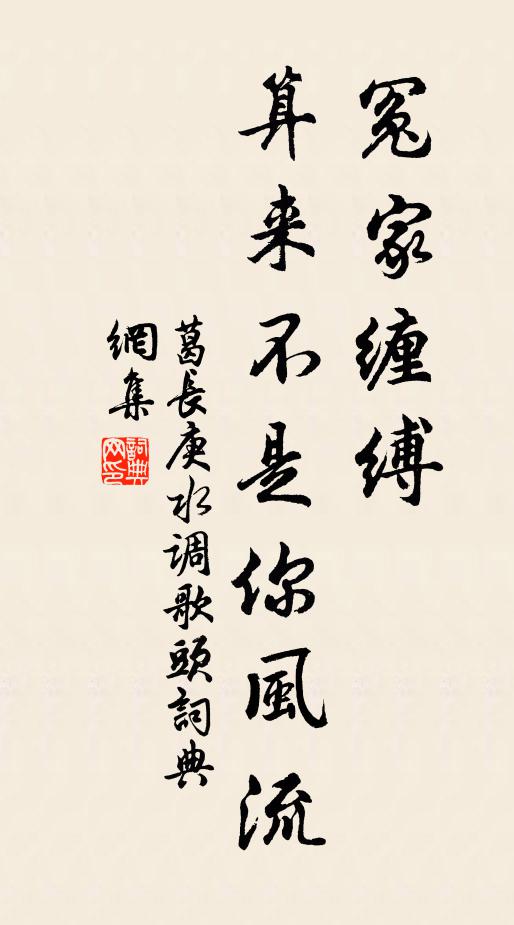 冤家缠缚
算来不是你風流
葛長庚水调歌頭詞典
網集
詞典网印